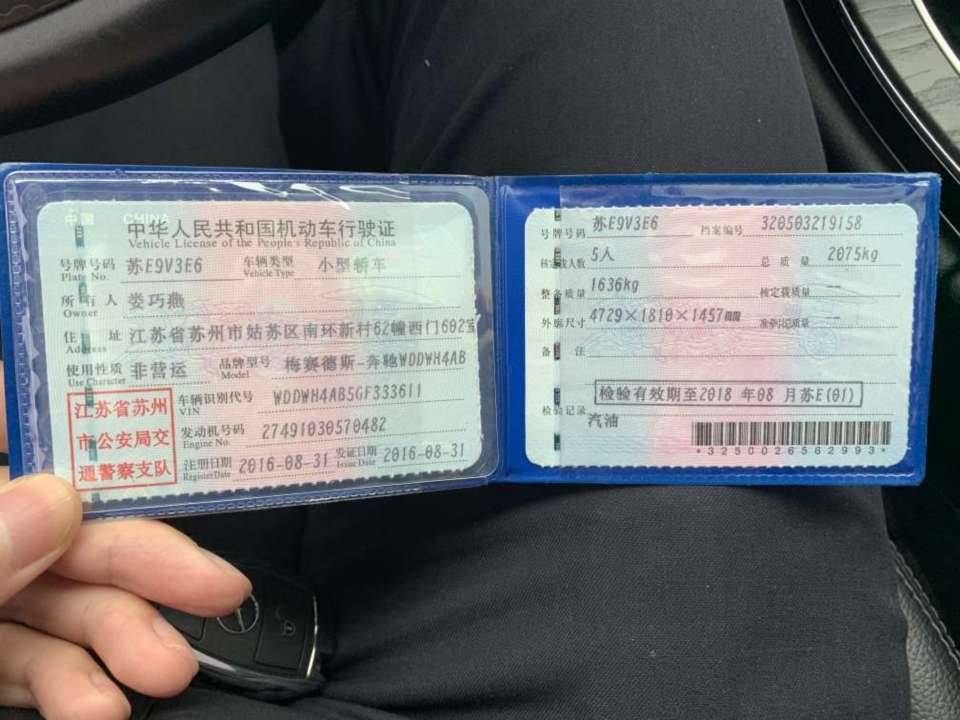 中国 CHINA
中华人民共和国机动车行驶证
Vehicle License of the People's Republic of China
号牌号码 苏E9V3E6 车辆类型 小型轿车
Plate No. Vehicle Type
所有人 娄巧燕
Owner
住址 江苏省苏州市姑苏区南环新村62幢西门602室
Address
使用性质 非营运 品牌型号 梅赛德斯-奔驰WDDWH4AB
Use Character Model
江苏省苏州
市公安局交
通警察支队
车辆识别代号 WDDWH4AB5GF333611
VIN
发动机号码 27491030570482
Engine No.
注册日期 2016-08-31 发证日期 2016-08-31
Register Date Issue Date
号牌号码 苏E9V3E6 档案编号 320503219158
核定载人数 5人 总质量 2075kg
整备质量 1636kg 核定载质量 --
外廓尺寸 4729×1810×1457mm 准牵引总质量 --
备注
检验有效期至2018年08月苏E(01)
检验记录
汽油
*3250026562993*